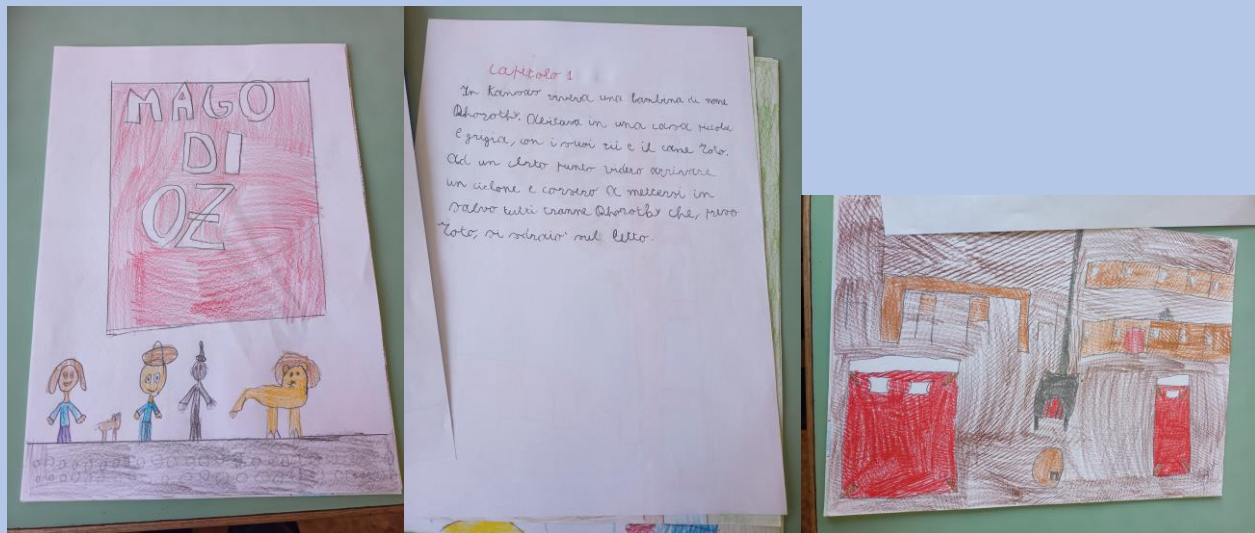 MAGO
DI
OZ
Capitolo 1
In Kansas viveva una bambina di nome
Dhorothy. Abitava in una casa piccola
e grigia, con i suoi zii e il cane Toto.
Ad un certo punto videro arrivare
un ciclone e corsero a mettersi in
salvo tutti tranne Dhorothy che, preso
Toto, si sdraio' sul letto.